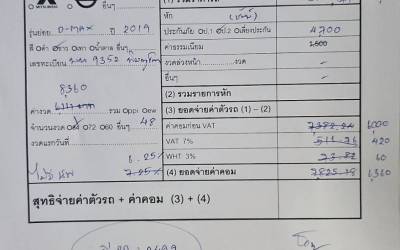 MITSUBISHI
(1) รวมราคารถ
หัก
รุ่นย่อย D-MAX ปี 2019
ประกันภัย Oป.1 Oป.2 Oเลี่ยงประกัน 4,700
สี Oดำ Oขาว Oเทา Oน้ำตาล อื่นๆ
ค่าธรรมเนียม 1,500
เลขทะเบียน 9352
งวดล่วงหน้า..........งวด -
อื่นๆ -
8,360
(2) รวมรายการหัก
ค่างวด รวม Oppi Oew
(3) ยอดจ่ายค่าตัวรถ (1) – (2)
จำนวนงวด O84 O72 O60 อื่นๆ 48
ค่าคอมก่อน VAT 7,382.24 6,000
งวดแรกวันที่
VAT 7% 420
6.25%
WHT 3% 60
7.25%
(4) ยอดจ่ายค่าคอม 7,825.18 6,360
สุทธิจ่ายค่าตัวรถ + ค่าคอม (3) + (4)